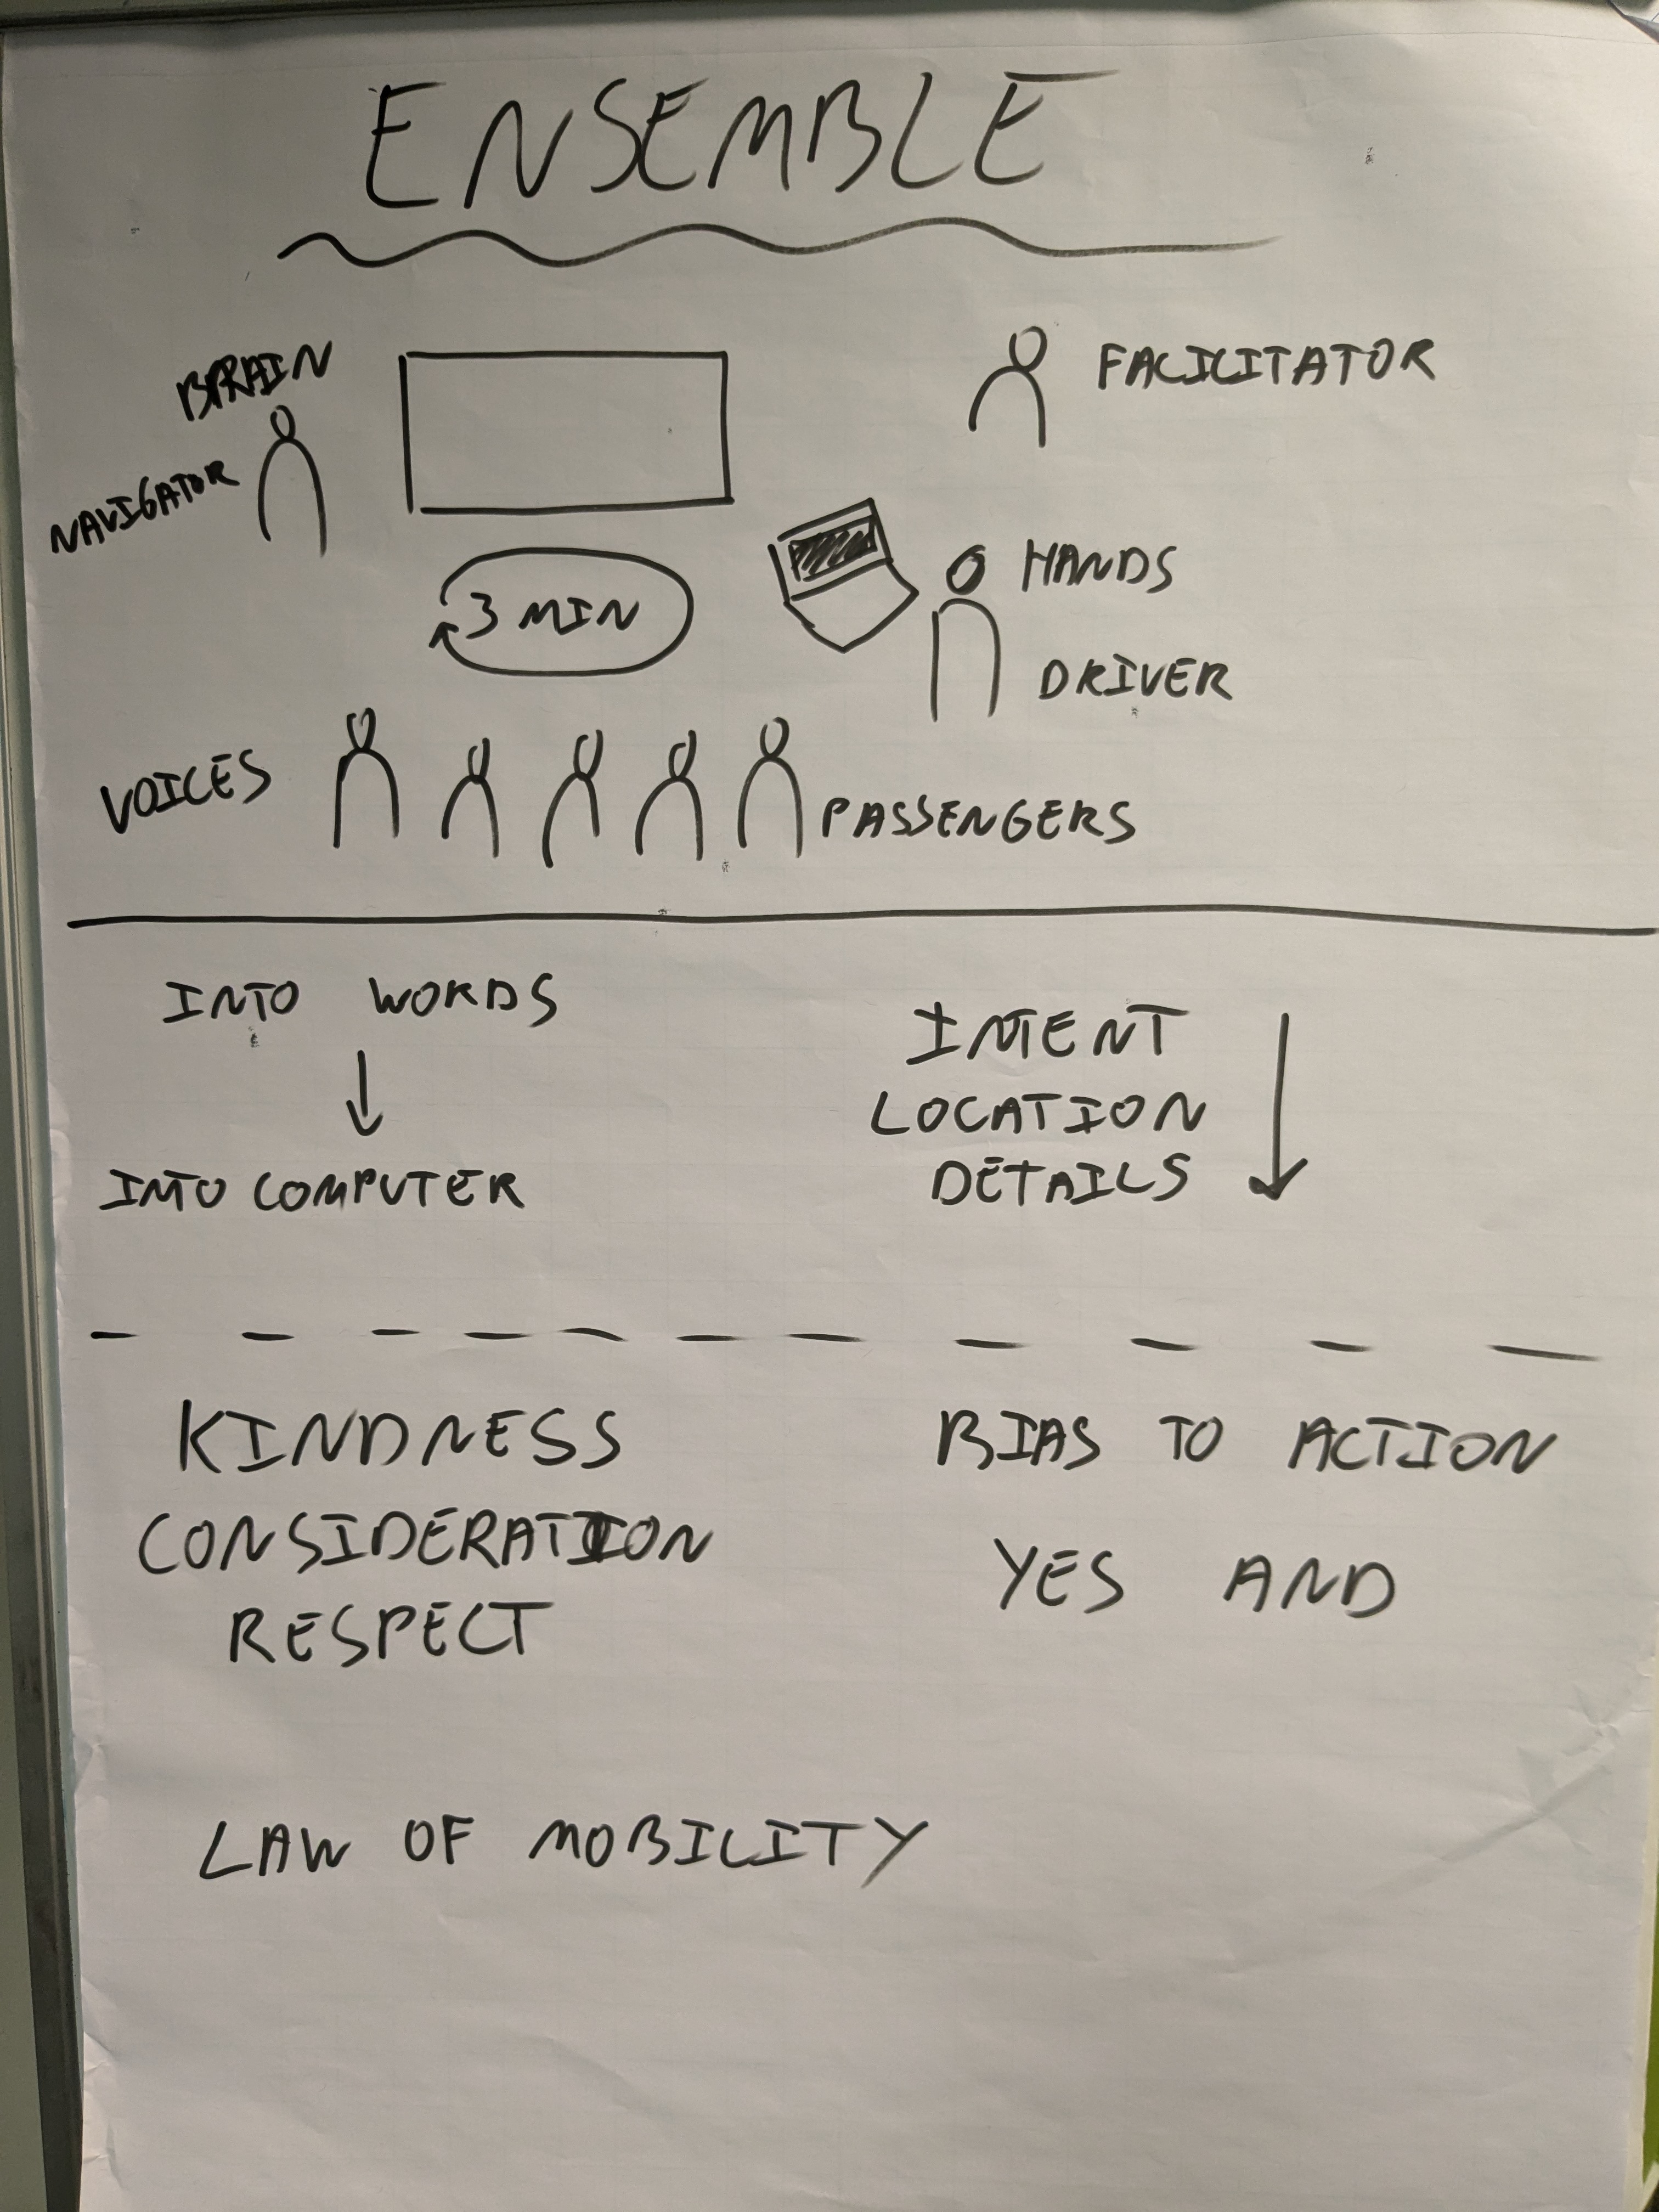 ENSEMBLE
BRAIN
NAVIGATOR
FACILITATOR
3 MIN
HANDS
DRIVER
VOICES
PASSENGERS
INTO WORDS
↓
INTO COMPUTER
INTENT
LOCATION
DETAILS
KINDNESS
CONSIDERATION
RESPECT
BIAS TO ACTION
YES AND
LAW OF MOBILITY